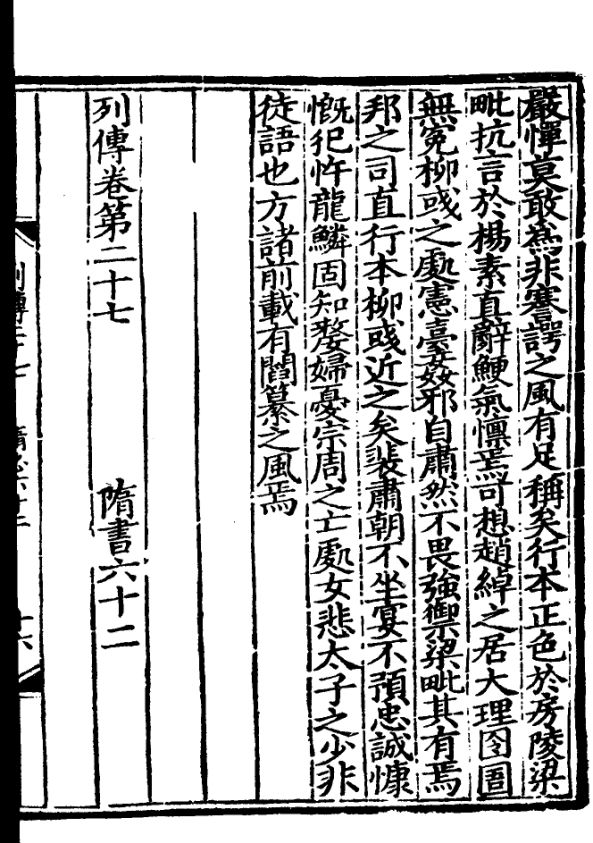 嚴憚莫敢為非謇諤之風有足稱矣行本正色於房陵梁
毗抗言於楊素直辭鯁氣懍焉可想趙綽之居大理囹圄
無冤柳彧之處憲臺姦邪自肅然不畏強禦梁毗其有焉
邦之司直行本柳彧近之矣裴肅朝不坐宴不預忠誠慷
慨犯忤龍鱗固知嫠婦憂宗周之亡處女悲太子之少非
徒語也方諸前載有閻纂之風焉
列傳卷第二十七 隋書六十二